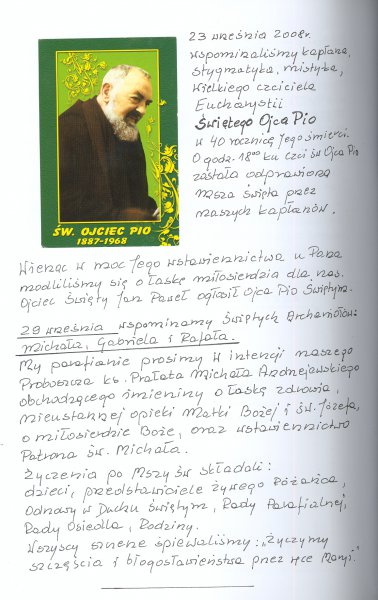 23 września 2008r.
wspominaliśmy kapłana,
stygmatyka, mistyka,
wielkiego czciciela
Eucharystii
Świętego Ojca Pio
w 40 rocznicę Jego śmierci.
O godz. 18⁰⁰ ku czci św. Ojca Pio
została odprawiona
Msza Święta przez
naszych kapłanów.
ŚW. OJCIEC PIO
1887-1968
Wierząc w moc Jego wstawiennictwa u Pana
modliliśmy się o łaskę miłosierdzia dla nas.
Ojciec Święty Jan Paweł ogłosił Ojca Pio Świętym.
29 września wspominamy Świętych Archaniołów:
Michała, Gabriela i Rafała.
My parafianie prosimy w intencji naszego
Proboszcza ks. Prałata Michała
obchodzącego imieniny o łaskę zdrowia,
nieustannej opieki Matki Bożej i św. Józefa,
o miłosierdzie Boże, oraz wstawiennictwo
Patrona św. Michała.
Życzenia po Mszy św. składali:
dzieci, przedstawiciele Żywego Różańca,
Odnowy w Duchu Świętym, Rady Parafialnej,
Rady Osiedla, Rodziny.
Wszyscy śpiewaliśmy: „Życzymy
szczęścia i błogosławieństwa przez ręce Maryi."